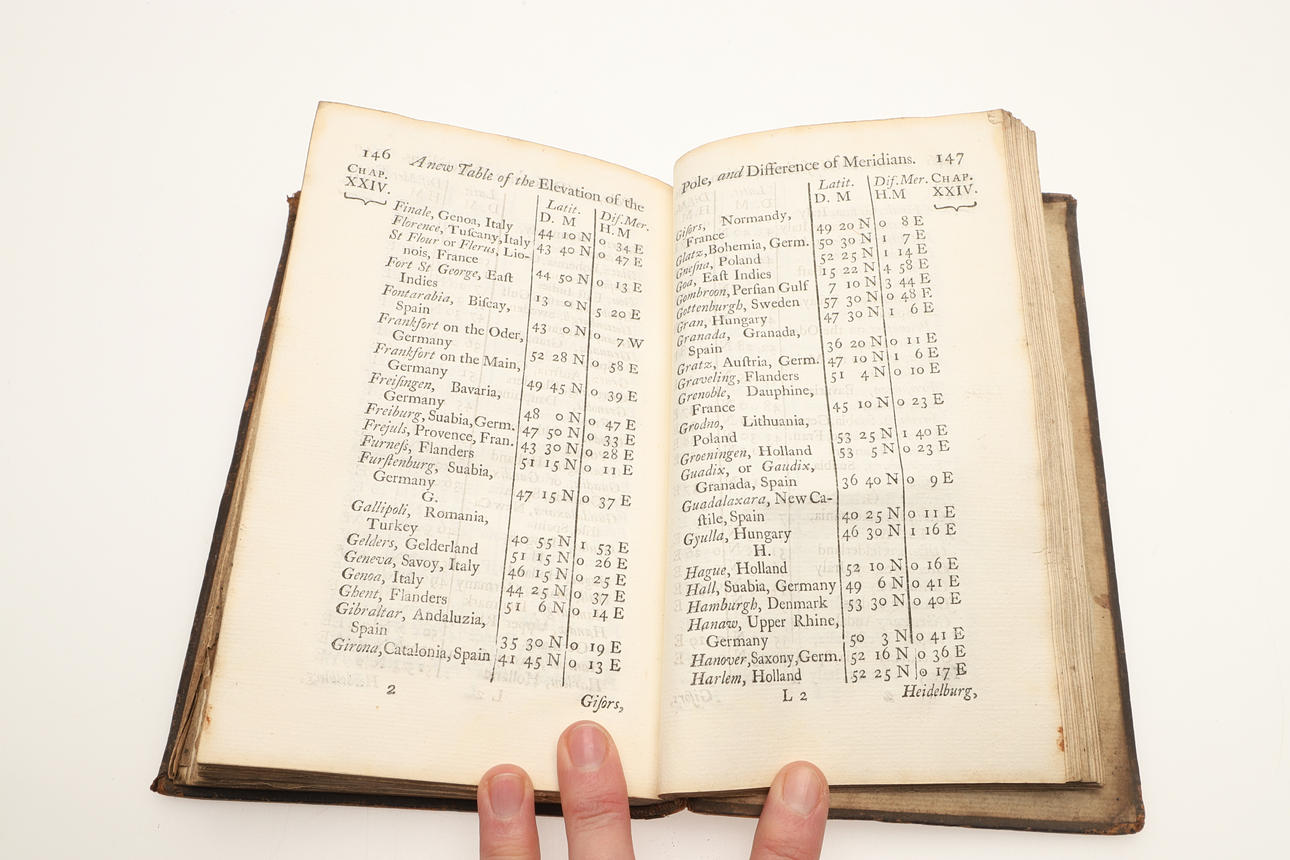 146 A new Table of the Elevation of the
CHAP. Latit. Dif.Mer.
XXIV. D. M H. M
Finale, Genoa, Italy 44 10 N 0 34 E
Florence, Tuſcany,Italy 43 40 N 0 47 E
St Flour or Flerus, Lio-
nois, France 44 50 N 0 13 E
Fort St George, Eaſt
Indies 13 0 N 5 20 E
Fontarabia, Biſcay,
Spain 43 0 N 0 7 W
Frankfort on the Oder,
Germany 52 28 N 0 58 E
Frankfort on the Main,
Germany 49 45 N 0 39 E
Freiſingen, Bavaria,
Germany 48 0 N 0 47 E
Freiburg, Suabia,Germ. 47 50 N 0 33 E
Frejuls, Provence, Fran. 43 30 N 0 28 E
Furneſs, Flanders 51 15 N 0 11 E
Furſtenburg, Suabia,
Germany 47 15 N 0 37 E
G.
Gallipoli, Romania,
Turkey 40 55 N 1 53 E
Gelders, Gelderland 51 15 N 0 26 E
Geneva, Savoy, Italy 46 15 N 0 25 E
Genoa, Italy 44 25 N 0 37 E
Ghent, Flanders 51 6 N 0 14 E
Gibraltar, Andaluzia,
Spain 35 30 N 0 19 E
Girona,Catalonia,Spain 41 45 N 0 13 E
2 Giſors,
Pole, and Difference of Meridians. 147
Latit. Dif.Mer. CHAP.
D. M H.M XXIV.
Giſors, Normandy,
France 49 20 N 0 8 E
Glatz,Bohemia, Germ. 50 30 N 1 7 E
Gneſna, Poland 52 25 N 1 14 E
Goa, Eaſt Indies 15 22 N 4 58 E
Gombroon, Perſian Gulf 7 10 N 3 44 E
Gottenburgh, Sweden 57 30 N 0 48 E
Gran, Hungary 47 30 N 1 6 E
Granada, Granada,
Spain 36 20 N 0 11 E
Gratz, Auſtria, Germ. 47 10 N 1 6 E
Graveling, Flanders 51 4 N 0 10 E
Grenoble, Dauphine,
France 45 10 N 0 23 E
Grodno, Lithuania,
Poland 53 25 N 1 40 E
Groeningen, Holland 53 5 N 0 23 E
Guadix, or Gaudix,
Granada, Spain 36 40 N 0 9 E
Guadalaxara, New Ca-
ſtile, Spain 40 25 N 0 11 E
Gyulla, Hungary 46 30 N 1 16 E
H.
Hague, Holland 52 10 N 0 16 E
Hall, Suabia, Germany 49 6 N 0 41 E
Hamburgh, Denmark 53 30 N 0 40 E
Hanaw, Upper Rhine,
Germany 50 3 N 0 41 E
Hanover,Saxony,Germ. 52 16 N 0 36 E
Harlem, Holland 52 25 N 0 17 E
L 2 Heidelburg,